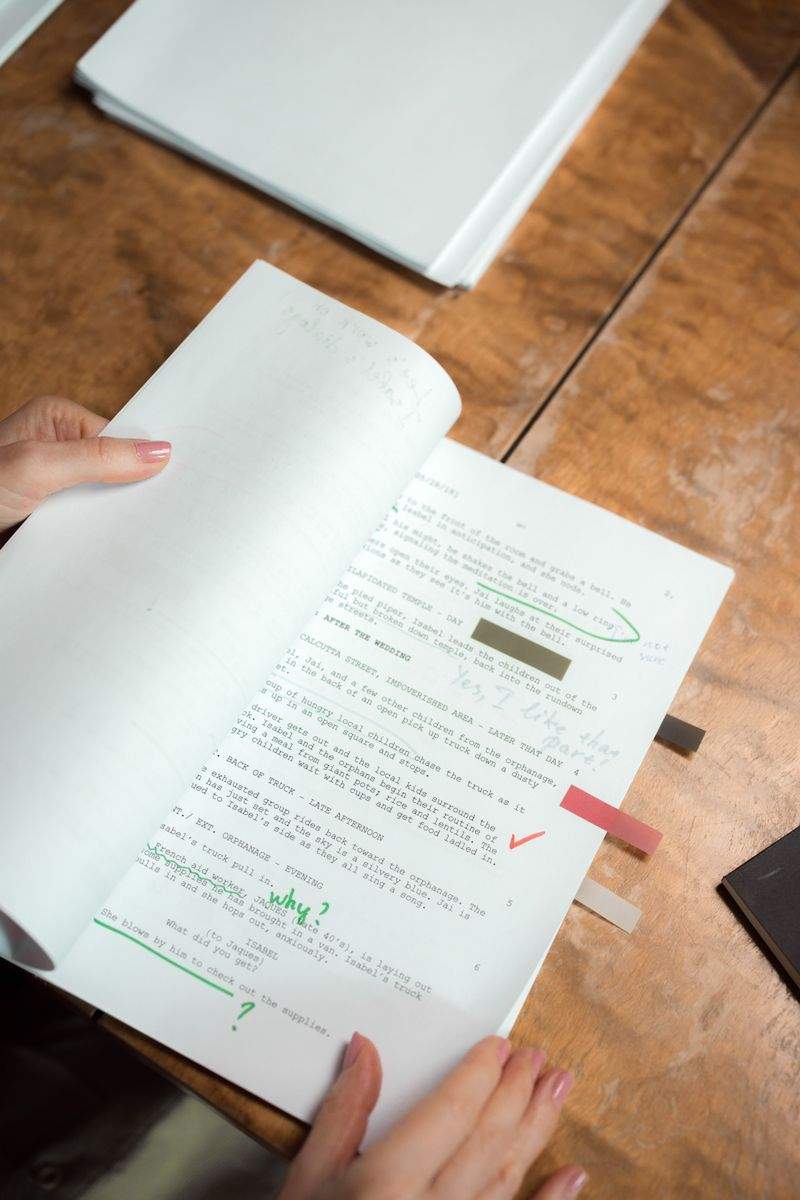 2.
to the front of the room and grabs a bell. He
Isabel in anticipation, and she nods.
his might, he shakes the bell and a low ring,
signaling the meditation is over.
open their eyes. Jai laughs at their surprised
as they see it's him with the bell.
not
sure
DILAPIDATED TEMPLE - DAY 3
pied piper, Isabel leads the children out of the
but broken down temple, back into the rundown
streets.
AFTER THE WEDDING
Yes, I like that
part!
CALCUTTA STREET, IMPOVERISHED AREA - LATER THAT DAY 4
Jai, and a few other children from the orphanage,
in the back of an open pick up truck down a dusty
of hungry local children chase the truck as it
up in an open square and stops.
driver gets out and the local kids surround the
Isabel and the orphans begin their routine of
a meal from giant pots; rice and lentils. The
children wait with cups and get food ladled in.
BACK OF TRUCK - LATE AFTERNOON 5
exhausted group rides back toward the orphanage. The
has just set and the sky is a silvery blue. Jai is
to Isabel's side as they all sing a song.
EXT. ORPHANAGE - EVENING 6
Isabel's truck pull in.
why?
French aid worker, JAQUES (late 40's), is laying out
some supplies he has brought in a van. Isabel's truck
pulls in and she hops out, anxiously.
ISABEL
(to Jaques)
What did you get?
She blows by him to check out the supplies.
?